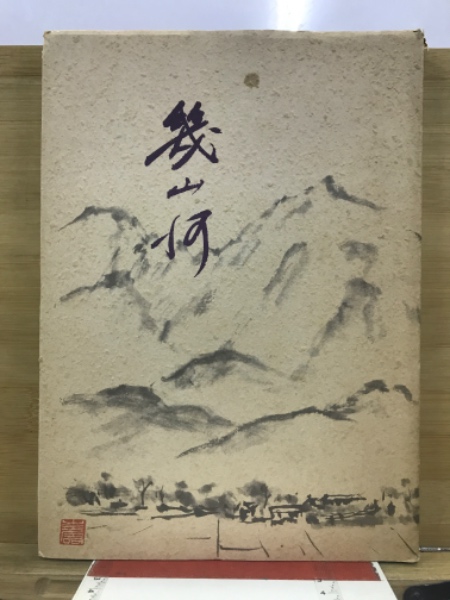 幾山河